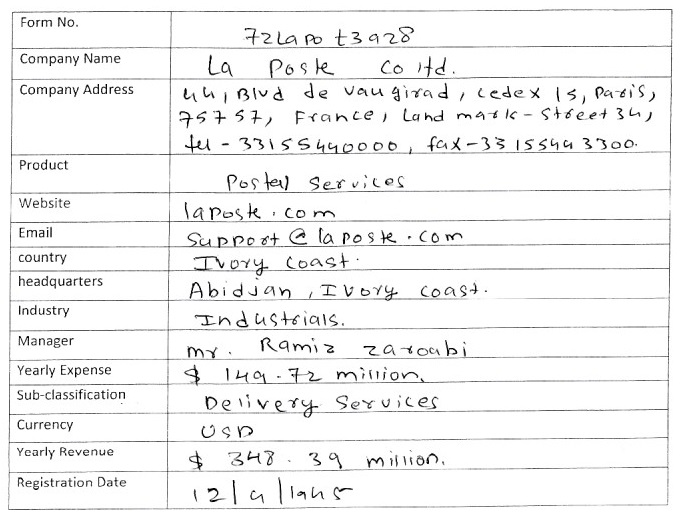 Form No.
72Lapot3928
Company Name
La Poste Co ltd.
Company Address
44, Blvd de vaugirad, cedex 15, Paris,
75757, France, Land mark - Street 34,
tel - 33155440000, fax - 33155443300.
Product
Postal Services
Website
laposte.com
Email
Support@laposte.com
country
Ivory Coast.
headquarters
Abidjan, Ivory coast.
Industry
Industrials.
Manager
mr. Ramiz zaroabi
Yearly Expense
$ 149.72 million.
Sub-classification
Delivery Services
Currency
USD
Yearly Revenue
$ 348.39 million.
Registration Date
12/9/1945